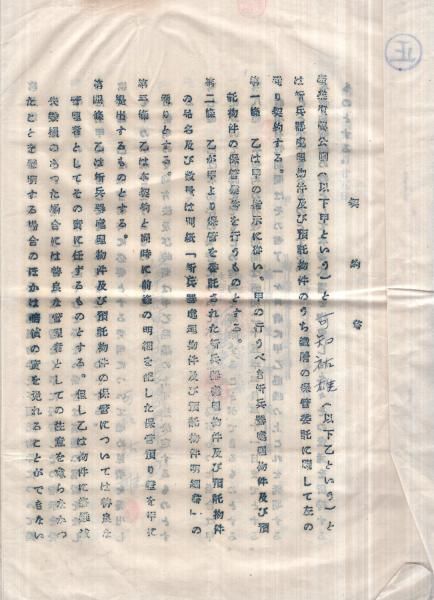 正
契約書
産業復興公團(以下甲という)と 可知祐雄(以下乙という)と
は新兵器處理物件及び預託物件のうち鐵屑の保管委託に關して左の
通り契約する。
第一條 乙は甲の指示に從い。甲の行うべき新兵器處理物件及び預
託物件の保管業務を行うものとする。
第二條 乙が甲より保管を委託された新兵器處理物件及び預託物件
の品名及び數量は別紙「新兵器處理物件及び預託物件明細書」の
通りとする。
第三條 乙は本契約と同時に前條の明細を記した保管預り證を甲に
提出するものとする。
第四條 乙は新兵器處理物件及び預託物件の保管については善良な
管理者としてその責に任ずるものとする。但し乙は物件に盜難
失毀損のあつた場合には善良な管理者としての注意を怠らなかつ
たことを證明する場合のほかは賠償の責を免れることができない